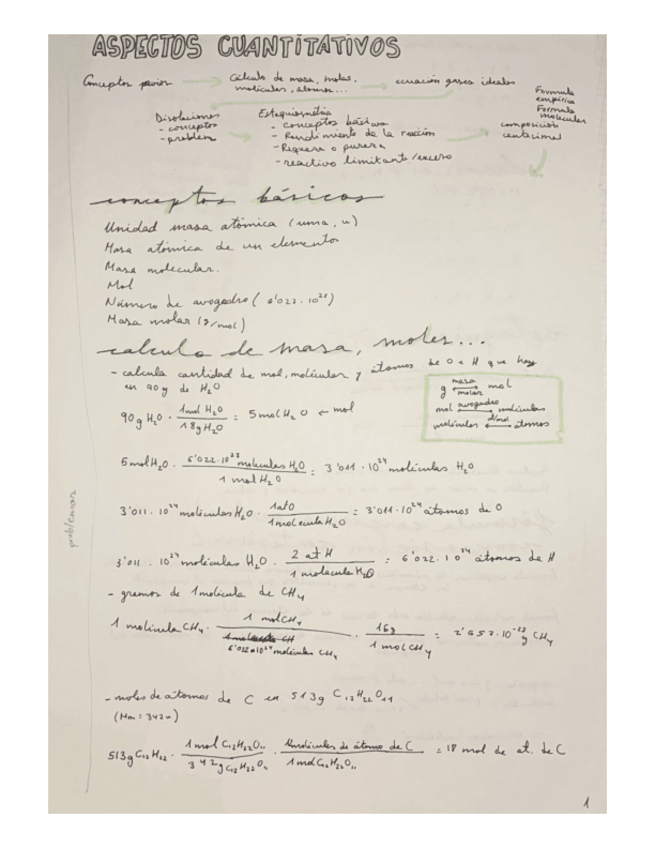 ASPECTOS CUANTITATIVOS
Conceptos previos → cálculo de masa, molas, moléculas, átomos... → ecuación gases ideales
Formula empírica
Formula molecular
composición centesimal
Disoluciones
- conceptos
- problem
Estequiometría
- conceptos básicos
- Rendimiento de la reacción
- Riqueza o pureza
- reactivo limitante/exceso
conceptos básicos
Unidad masa atómica (uma, u)
Masa atómica de un elemento
Masa molecular.
Mol
Número de avogadro (6'022·10²³)
Masa molar (g/mol)
calculo de masa, moles...
- calcula cantidad de mol, moléculas y átomos de O e H que hay
en 90g de H₂O
g masa molar mol
mol avogadro moléculas
moléculas at/mol átomos
90g H₂O · 1mol H₂O / 18g H₂O = 5 mol H₂O ← mol
5 mol H₂O · 6'022·10²³ moleculas H₂O / 1 mol H₂O = 3'011·10²⁴ moléculas H₂O
3'011·10²⁴ moléculas H₂O · 1 at O / 1 molecula H₂O = 3'011·10²⁴ átomos de O
problemas
3'011·10²⁴ moléculas H₂O · 2 at H / 1 molecula H₂O = 6'022·10²⁴ átomos de H
- gramos de 1 molécula de CH₄
1 molécula CH₄ · 1 mol CH₄ / 6'022·10²⁴ moléculas CH₄ · 16g / 1 mol CH₄ = 2'657·10⁻²³ g CH₄
- moles de átomos de C en 513g C₁₂H₂₂O₁₁
(Mm: 342u)
513g C₁₂H₂₂ · 1 mol C₁₂H₂₂O₁₁ / 342g C₁₂H₂₂O₁₁ · de átomo de C / 1 mol C₁₂H₂₂O₁₁ = 18 mol de at. de C
1